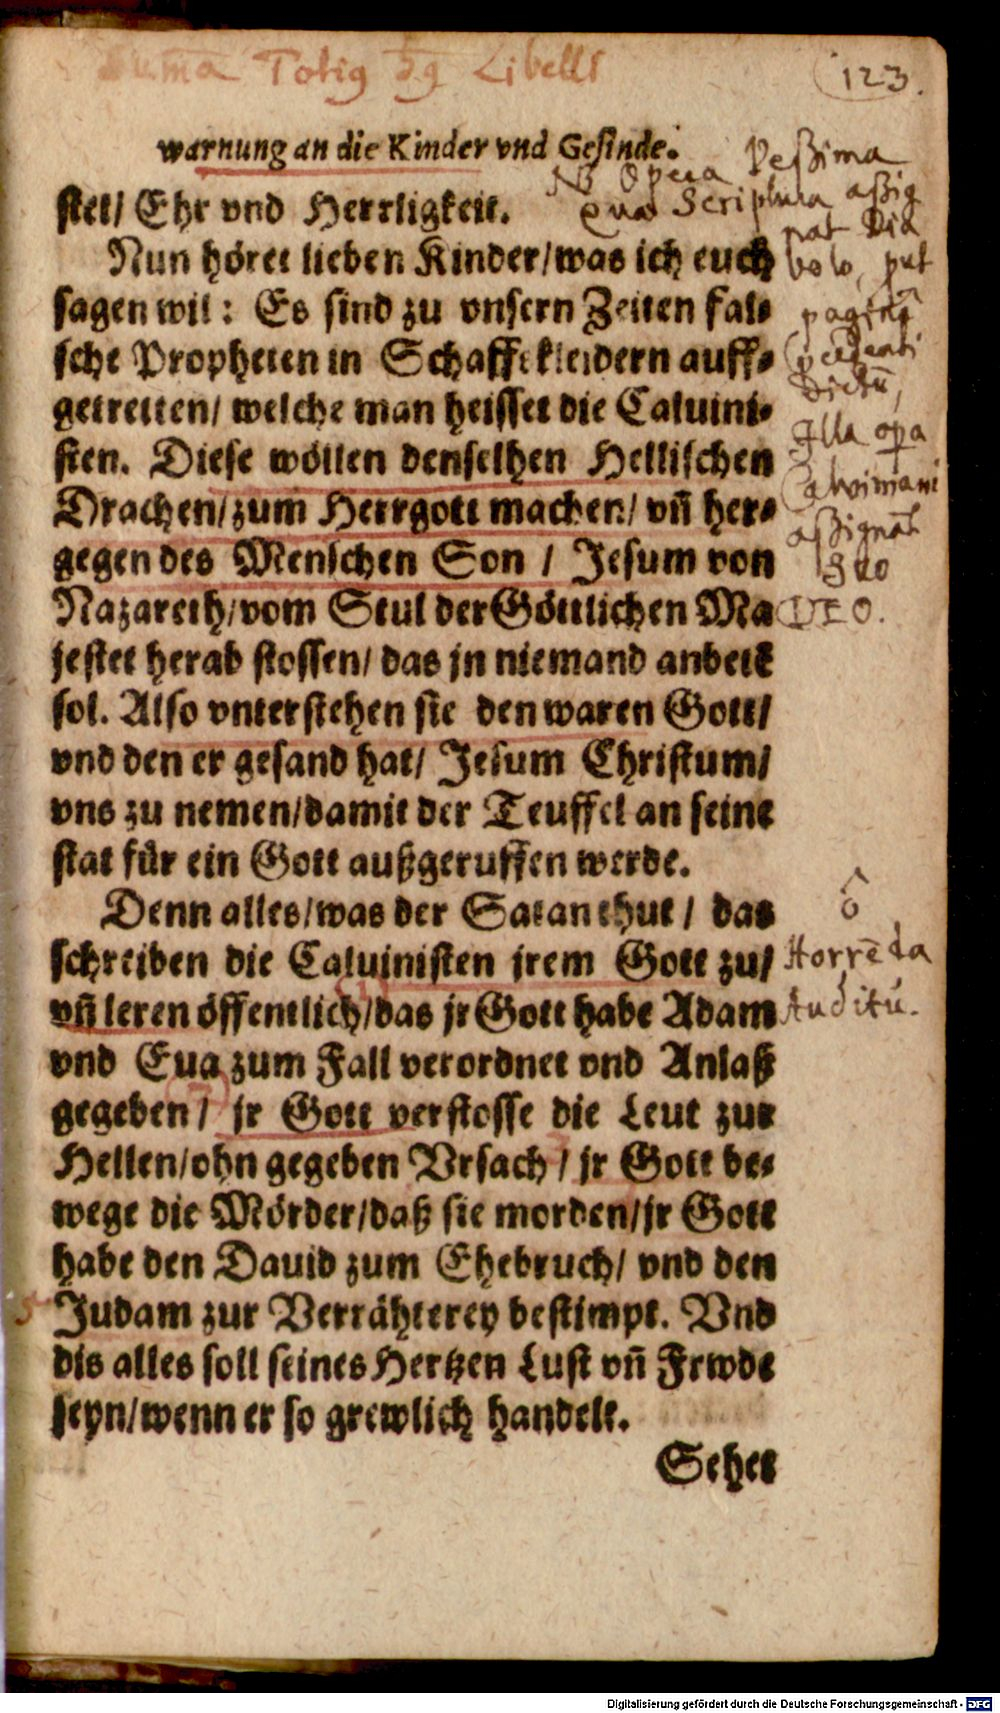 Suma Totig hg Libelli
123.
warnung an die Kinder vnd Gesinde.
stet/ Ehr vnd Herrligkeit.
Nun höret lieben Kinder/was ich euch
sagen wil: Es sind zu vnsern Zeiten fal-
sche Propheten in Schaffskleidern auff-
getretten/ welche man heisset die Caluini-
sten. Diese wöllen denselben Hellischen
Drachen/zum Herrgott machen/ vñ her-
gegen des Menschen Son / Jesum von
Nazareth/vom Stul der Göttlichen Ma
jestet herab stossen/ das jn niemand anbetẽ
sol. Also vnterstehen sie den waren Gott/
vnd den er gesand hat/ Jesum Christum/
vns zu nemen/damit der Teuffel an seine
stat für ein Gott außgeruffen werde.
Denn alles/was der Satan thut / das
schreiben die Caluinisten jrem Gott zu/
vñ leren öffentlich/das jr Gott habe Adam
vnd Eua zum Fall verordnet vnd Anlaß
gegeben/ jr Gott verstosse die Leut zur
Hellen/ohn gegeben Vrsach / jr Gott be-
wege die Mörder/daß sie morden/jr Gott
habe den Dauid zum Ehebruch/ vnd den
Judam zur Verrähterey bestimpt. Vnd
dis alles soll seines Hertzen Lust vñ Frwde
seyn/wenn er so grewlich handelt.
Sehet
NB Opera Peßima
quae Scriptura aßig
nat Dia
bolo, put
paginâ
dictũ,
Illa opa
Calviniani
aßignãt
suo
DEO.
ô
Horrẽda
Auditu.
5
Digitalisierung gefördert durch die Deutsche Forschungsgemeinschaft - DFG